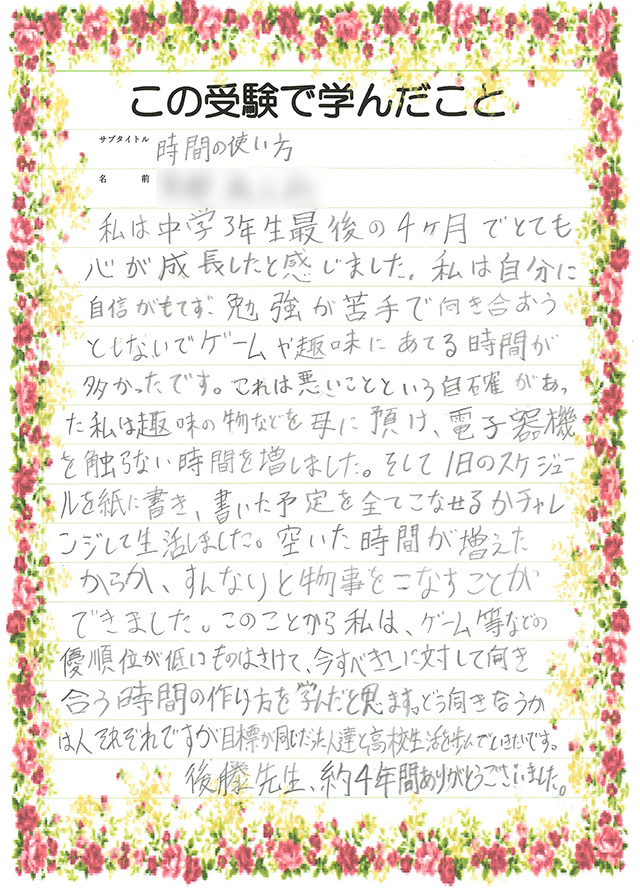 この受験で学んだこと
サブタイトル 時間の使い方
名前
私は中学3年生最後の4ヶ月でとても
心が成長したと感じました。私は自分に
自信がもてず、勉強が苦手で向き合おう
ともないでゲームや趣味にあてる時間が
多かったです。これは悪いことという自確があっ
た私は趣味の物などを母に預け、電子器機
を触らない時間を増しました。そして1日のスケジュー
ルを紙に書き、書いた予定を全てこなせるかチャレ
ンジして生活しました。空いた時間が増えた
からか、すんなりと物事をこなすことが
できました。このことから私は、ゲーム等などの
優順位が低いものはさけて、今すべきことに対して向き
合う時間の作り方を学んだと思います。どう向き合うか
は人それぞれですが目標が同じだった人達と高校生活を歩んでいきたいです。
後藤先生、約4年間ありがとうございました。